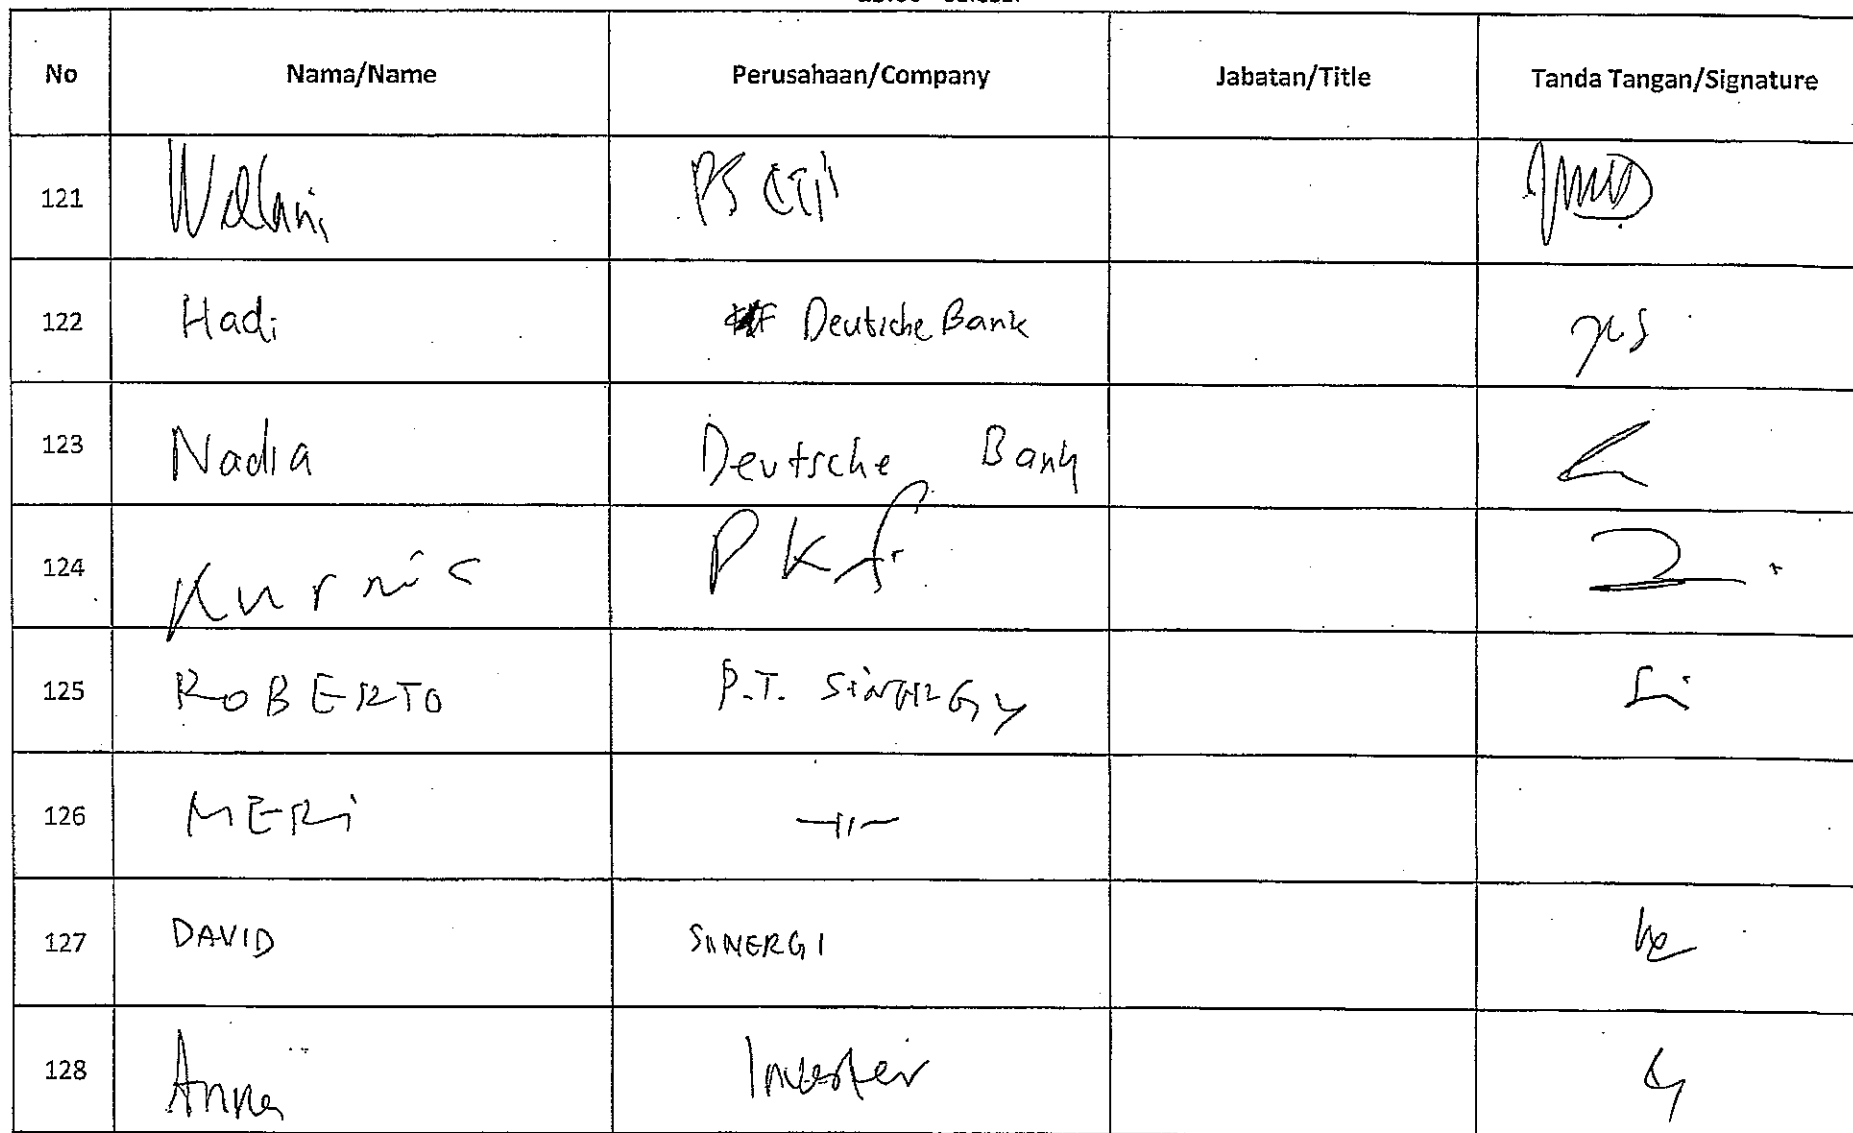 No Nama/Name Perusahaan/Company Jabatan/Title Tanda Tangan/Signature
121
122 Hadi Deutsche Bank
123 Nadia Deutsche Bank
124 Kurnia PKF
125 ROBERTO P.T. SINERGY
126 MERI -11-
127 DAVID SINERGI
128 Anna Investor